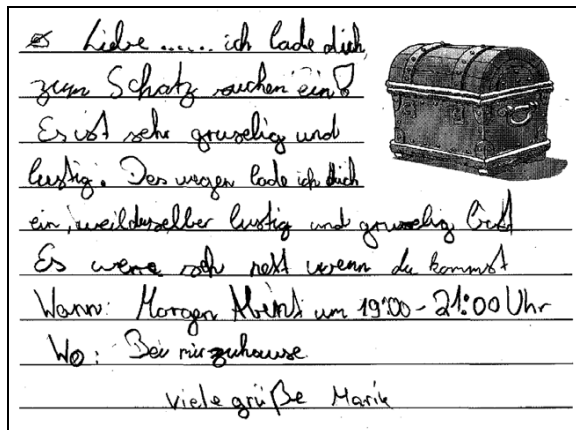 Liebe ...... ich lade dich
zum Schatz suchen ein!
Es ist sehr gruselig und
lustig. Des wegen lade ich dich
ein, weil du selber lustig und gruselig bist
Es were sehr nett wenn du kommst
Wann: Morgen Abint um 19:00 - 21:00 Uhr
Wo: Bei mir zuhause
viele grüße Marik